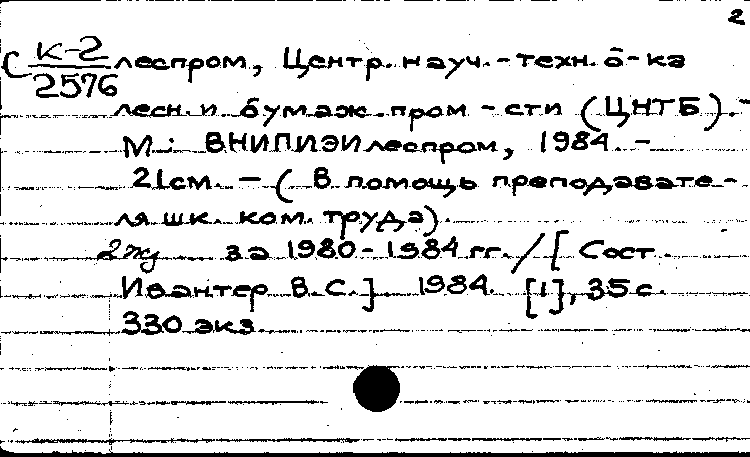 2
С К-2 леспром, Центр. науч.-техн. б-ка
2576
лесн. и бумаж. пром-сти (ЦНТБ).-
М: ВНИПИЭИлеспром, 1984.-
21см. - ( В помощь преподавате-
ля шк. ком. труда).
2жу за 1980-1984 гг. / [ Сост.
Ивантер В.С.] 1984. [1], 35с.
330 экз.